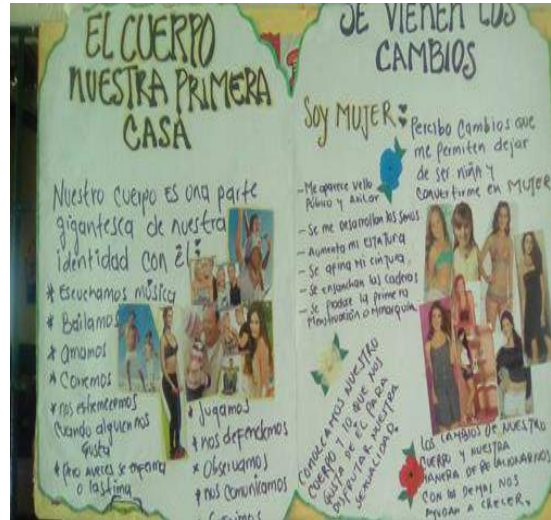 EL CUERPO
NUESTRA PRIMERA
CASA
Nuestro cuerpo ES una parte
gigantesca de nuestra
identidad con él:
* Escuchamos música
* Bailamos
* amamos
* Corremos
* nos estremecemos
cuando alguien nos
gusta
* pero aveces se enferma
o lastima
* Jugamos
* nos defendemos
* Observamos
* nos comunicamos
SE VIENEN LOS
CAMBIOS
SOY MUJER:
Percibo Cambios que
me permiten dejar
de ser niña y
convertirme en MUJER
- Me aparece vello
Púbico y axilar
- Se me desarrollan los senos
- Aumenta mi estatura
- Se afina mi cintura
- Se ensanchan las caderas
- Se produce la primera
Menstruación o Menarquia
CONOZCAMOS NUESTRO
CUERPO Y LO QUE NOS
GUSTA DE EL PARA
DISFRUTAR NUESTRA
SEXUALIDAD
LOS CAMBIOS DE NUESTRO
CUERPO Y NUESTRA
MANERA DE RELACIONARNOS
CON los DEMAS NOS
AYUDAN A CRECER.